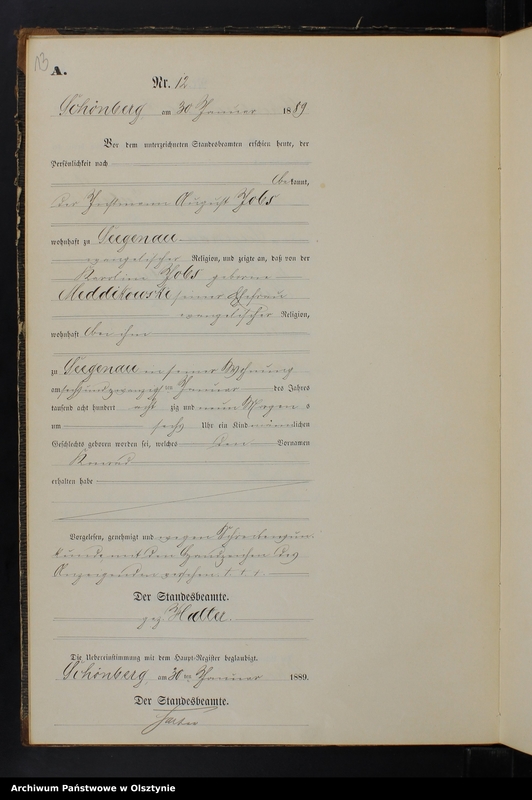 13
A.
Nr. 12
Schönberg am 30 Januar 1889
Vor dem unterzeichneten Standesbeamten erschien heute, der
Persönlichkeit nach
kannt,
der August Jobs
wohnhaft zu Seegenau
evangelischer Religion, und zeigte an, daß von der
Karoline Jobs geborene
Meddikowski seiner Ehefrau
evangelischer Religion,
wohnhaft bei ihm
zu Seegenau in seiner Wohnung
am sechsundzwanzigsten Januar des Jahres
tausend acht hundert acht zig und neun Morgens
um sechs Uhr ein Kind männlichen
Geschlechts geboren worden sei, welches den Vornamen
Konrad
erhalten habe
Vorgelesen, genehmigt und wegen Schreibensun-
kunde mit den Handzeichen des
Anzeigenden versehen † † †
Der Standesbeamte.
gez.
Die Uebereinstimmung mit dem Haupt-Register beglaubigt.
Schönberg am 30 ten Januar 1889.
Der Standesbeamte.
Archiwum Państwowe w Olsztynie